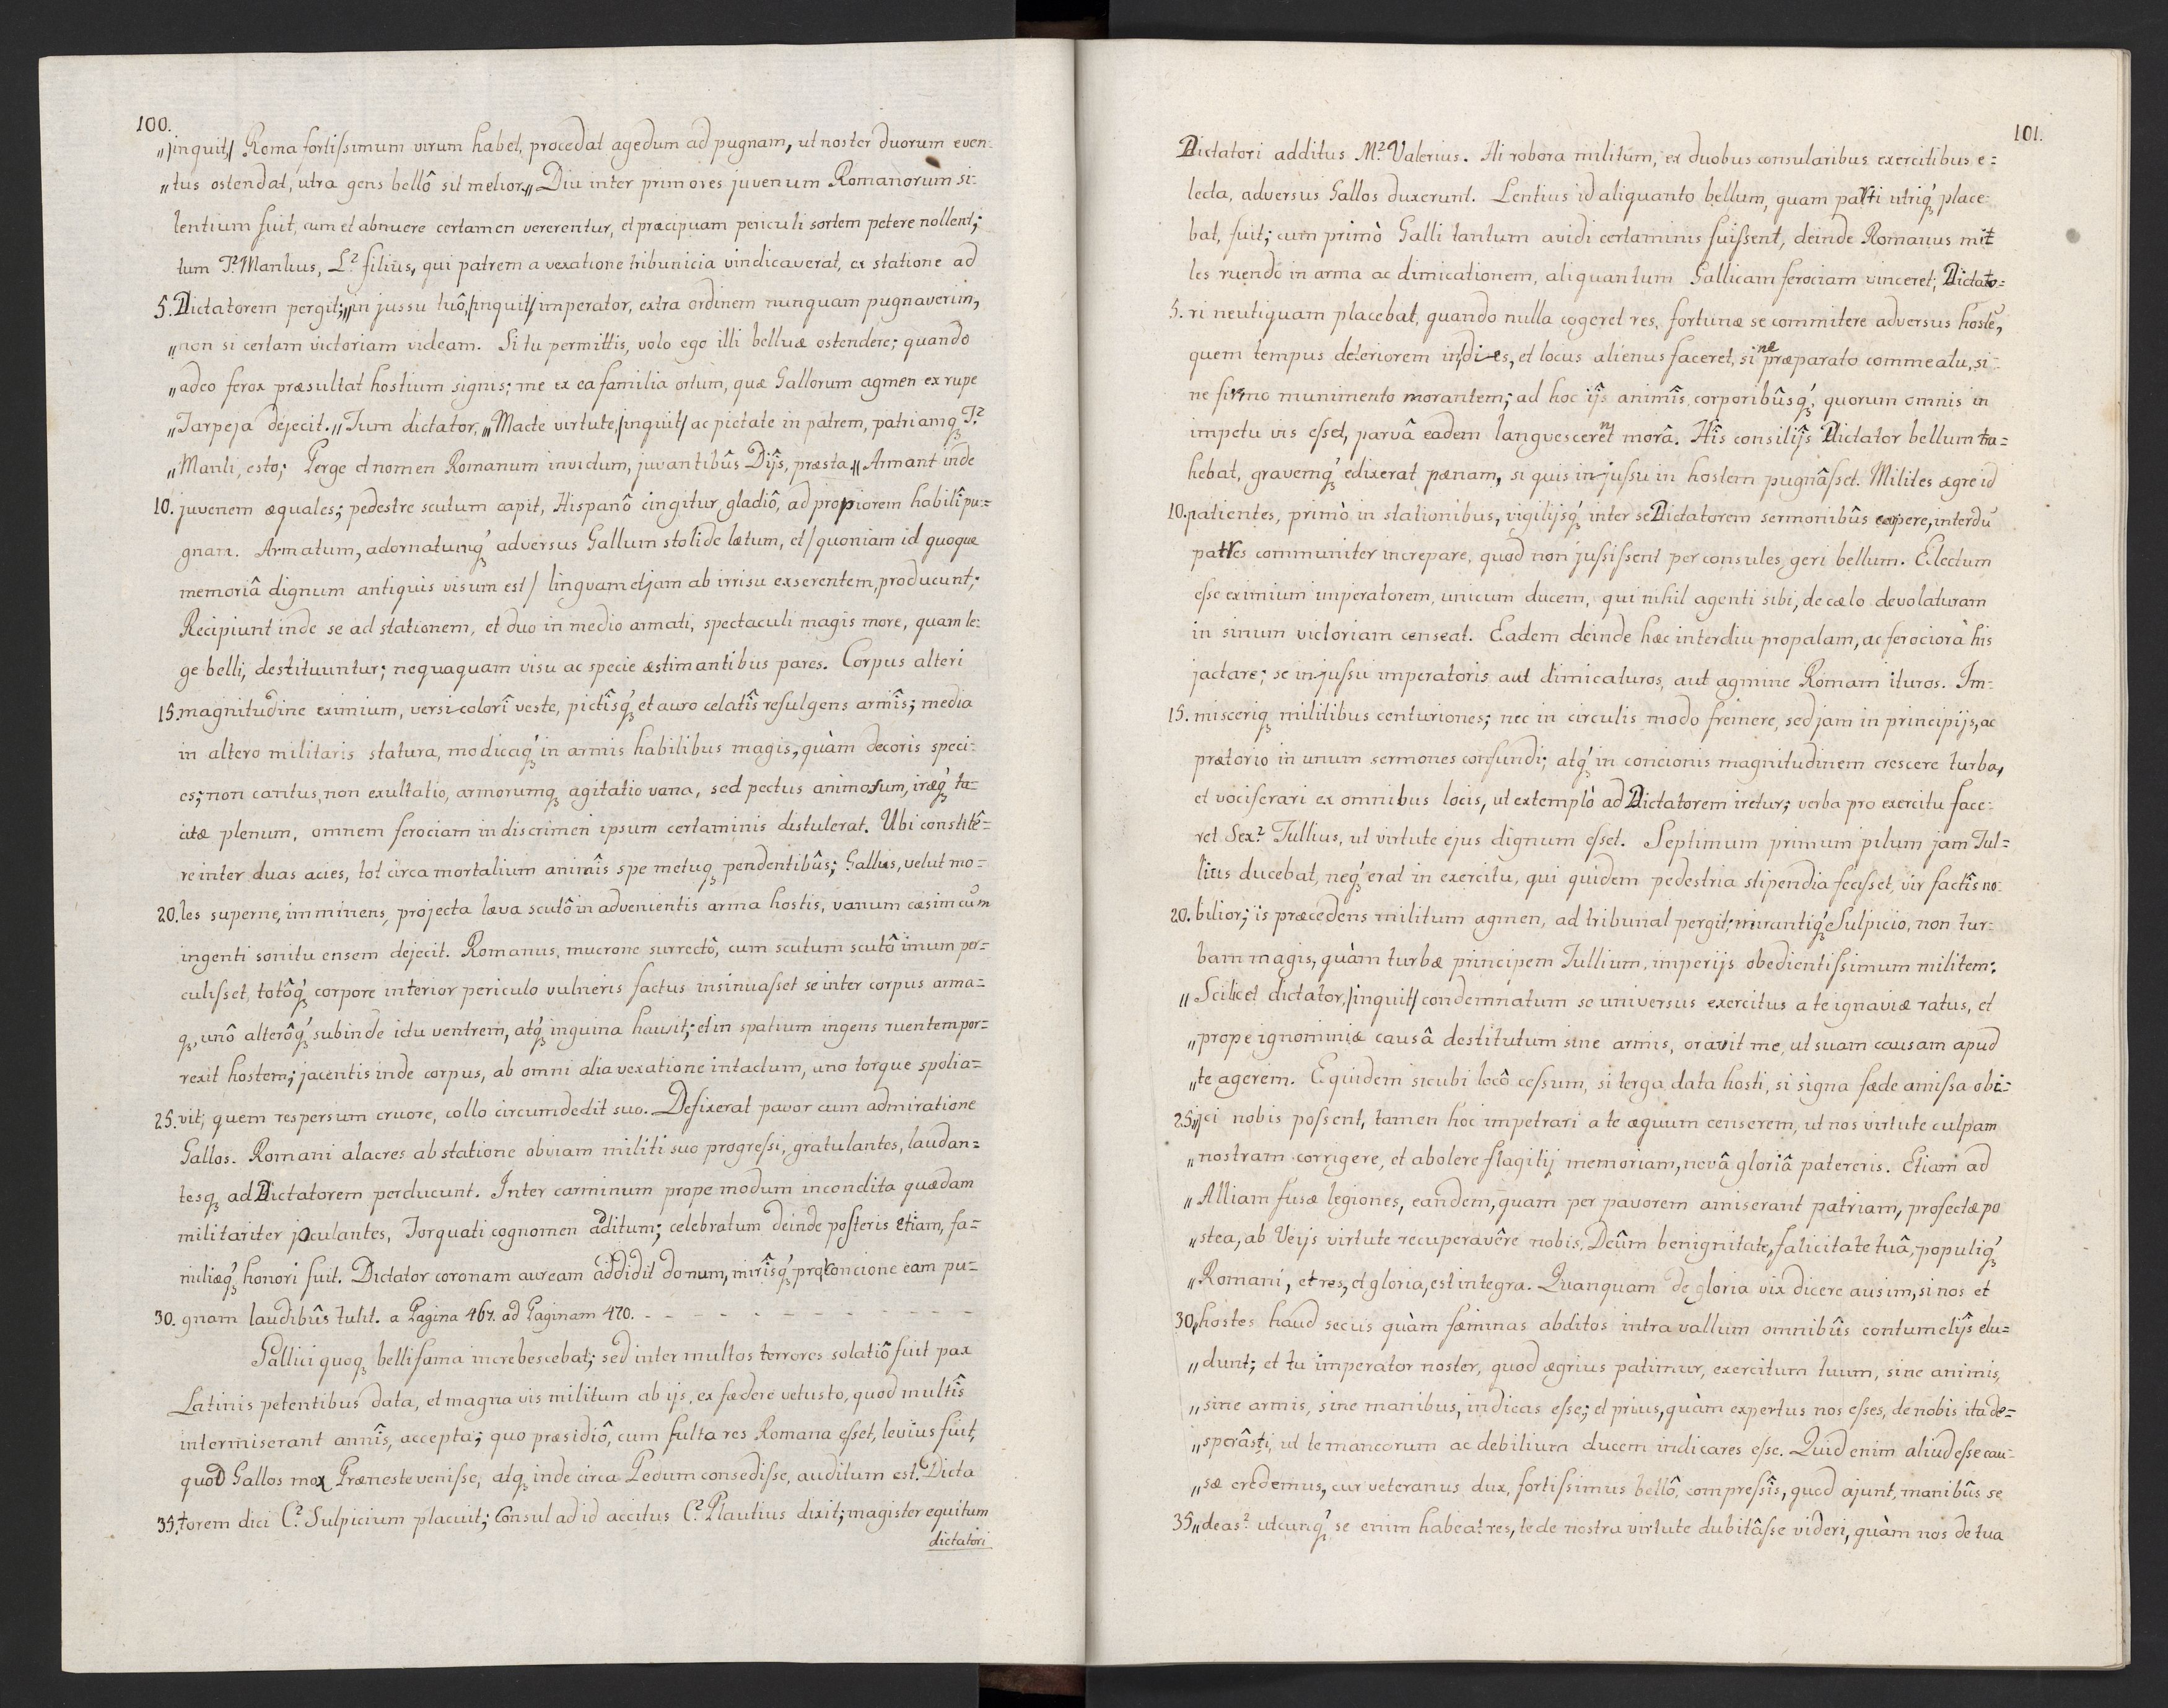 100.
„/inquit,/ Roma fortissimum virum habet, procedat agedum ad pugnam, ut noster duorum even-
„tus ostendat, utra gens bellô sit melior„ Diu inter primores juvenum Romanorum si-
lentium fuit, cum et abnuere certamen vererentur, et præcipuam periculi sortem petere nollent;
tum T.² Manlius, L.² filius, qui patrem a vexatione tribunicia vindicaverat, ex statione ad
5. Dictatorem pergit; „injussu tuô, /inquit/ imperator, extra ordinem nunquam pugnaverim,
„non si certam victoriam videam. Si tu permittis, volo ego illi belluæ ostendere; quando
„adeo ferox præsultat hostium signis; me ex ea familia ortum, quæ Gallorum agmen ex rupe
„Tarpeja dejecit.„ Tum dictator, „Macte virtute, /inquit/ ac pietate in patrem, patriamq₃ T.²
„Manli, esto; Perge et nomen Romanum invictum, juvantibûs Dijs, præsta.„ Armant inde
10. juvenem æquales; pedestre scutum capit, Hispanô cingitur gladiô, ad propiorem habilî pu=
gnam. Armatum, adornatumq₃́ adversus Gallum stolide lætum, et / quoniam id quoque
memoriâ dignum antiquis visum est / linguam etjam ab irrisu exserentem, producunt;
Recipiunt inde se ad stationem, et duo in medio armati, spectaculi magis more, quam le-
ge belli, destituuntur; nequaquam visu ac specie æstimantibus pares. Corpus alteri
15. magnitudine eximium, versicolorî veste, pictîsq₃́ et auro celatîs refulgens armîs; media
in altero militaris statura, modicaq₃́ in armis habilibus magis, quàm decoris speci-
es; non cantus, non exultatio, armorumq₃ agitatio vana, sed pectus animosum, iræq₃́ ta-
citæ plenum, omnem ferociam in discrimen ipsum certaminis distulerat. Ubi constitê=
re inter duas acies, tot circa mortalium animîs spe metuq₃ pendentibûs; Gallus, velut mo=
20. les superne, imminens, projecta læva scutô in advenientis arma hostis, vanum cæsim cum
ingenti sonitu ensem dejecit. Romanus, mucrone surrectô, cum scutum scutô imum per=
culisset, totôq₃́ corpore interior periculo vulneris factus insinuasset se inter corpus arma=
q₃, unô alterôq₃́ subinde ictu ventrem, atq₃́ inguina hausit; et in spatium ingens ruentem por=
rexit hostem; jacentis inde corpus, ab omni alia vexatione intactum, uno torque spolia=
25. vit; quem respersum cruore, collo circumdedit suo. Defixerat pavor cum admiratione
Gallos. Romani alacres ab statione obviam militi suo progressi, gratulantes, laudan=
tesq₃ ad Dictatorem perducunt. Inter carminum prope modum incondita quædam
militariter joculantes, Torquati cognomen additum; celebratum deinde posteris etiam, fa=
miliæq₃́ honori fuit. Dictator coronam auream addidit donum, mirîsq₃́ pro concione eam pu=
30. gnam laudibûs tulit. a Pagina 467. ad Paginam 470. - - - - - - - - - - - -
Gallici quoq₃ belli fama increbescebat; sed inter multos terrores solatiô fuit pax
Latinis petentibus data, et magna vis militum ab ijs, ex fædere vetusto, quod multîs
intermiserant annîs, accepta; quo præsidiô, cum fulta res Romana esset, levius fuit,
quod Gallos mox Præneste venisse, atq₃ inde circa Pedum consedisse, auditum est. Dicta
35. torem dici C.² Sulpicium placuit; Consul ad id accitus C.² Plautius dixit; magister equitum
dictatori
101.
Dictatori additus M.² Valerius. Hi robora militum, ex duobus consularibus exercitibus e=
lecta, adversus Gallos duxerunt. Lentius id aliquanto bellum, quam parti utriq₃́ place-
bat, fuit; cum primò Galli tantum avidi certaminis fuissent, deinde Romanus mil
les ruendo in arma ac dimicationem, aliquantum Gallicam ferociam vinceret; Dictato=
5. ri neutiquam placebat, quando nulla cogeret res, fortunæ se commitere adversus hostē,
quem tempus deteriorem in dies, et locus alienus faceret, si ne præparato commeatu, si-
ne firmo munimento morantem; ad hoc ijs animîs, corporibûsq₃́, quorum omnis in
impetu vis esset, parvâ eadem languesceret morâ. Hîs consilijs Dictator bellum tra=
hebat, gravemq₃́ edixerat pænam, si quis injussu in hostem pugnâsset. Milites ægre id
10. patientes, primò in stationibus, vigilijsq₃́ inter se Dictatorem sermonibûs capere, interdū
patres communiter increpare, quod non jussissent per consules geri bellum. Electum
esse eximium imperatorem, unicum ducem, qui nihil agenti sibi, de cælo devolaturam
in sinum victoriam censeat. Eadem deinde hæc interdiu propalam, ac ferociora his
jactare; se injussu imperatoris aut dimicaturos, aut agmine Romam ituros. Im-
15. misceriq₃ militibus centuriones; nec in circulis modo fremere, sed jam in principijs, ac
prætorio in unum sermones confundi; atq₃́ in concionis magnitudinem crescere turba,
et vociferari ex omnibus locis, ut extemplò ad Dictatorem iretur; verba pro exercitu face-
ret Sex.² Tullius, ut virtute ejus dignum esset. Septimum primum pilum jam Tul=
lius ducebat, neq₃́ erat in exercitu, qui quidem pedestria stipendia fecisset, vir factîs no-
20. bilior; is præcedens militum agmen, ad tribunal pergit; mirantiq₃́ Sulpicio, non tur-
bam magis, quàm turbæ principem Tullium, imperijs obedientissimum militem;
„Scilicet dictator, /inquit/ condemnatum se universus exercitus a te ignaviæ ratus, et
„prope ignominiæ causâ destitutum sine armis, oravit me, ut suam causam apud
„te agerem. Equidem sicubi locô cessum, si terga data hosti, si signa fæde amissa obi=
25. „jci nobis possent, tamen hoc impetrari a te æquum censerem, ut nos virtute culpam
„nostram corrigere, et abolere flagitij memoriam, novâ gloriâ patereris. Etiam ad
„Alliam fusæ legiones, eandem, quam per pavorem amiserant patriam, profectæ po
„stea, ab Veijs virtute recuperavêre nobis, Deûm benignitate, falicitate tuâ, populiq₃́
„Romani, et res, et gloria, est integra. Quanquam de gloria vix dicere ausim, si nos et
30. „hostes haud secus quàm fæminas abditos intra vallum omnibûs contumelijs elu=
„dunt; et tu imperator noster, quod ægrius patimur, exercitum tuum, sine animis,
„sine armis, sine manibus, indicas esse; et prius, quàm expertus nos esses, de nobis ita de=
„sperâsti, ut te mancorum ac debilium ducem indicares esse. Quid enim aliud esse cau-
„sæ credemus, cur veteranus dux, fortissimus bellô, compressîs, quod ajunt, manibûs se
35. „deas? utcunq₃́ se enim habeat res, te de nostra virtute dubitâsse videri, quàm nos de tua